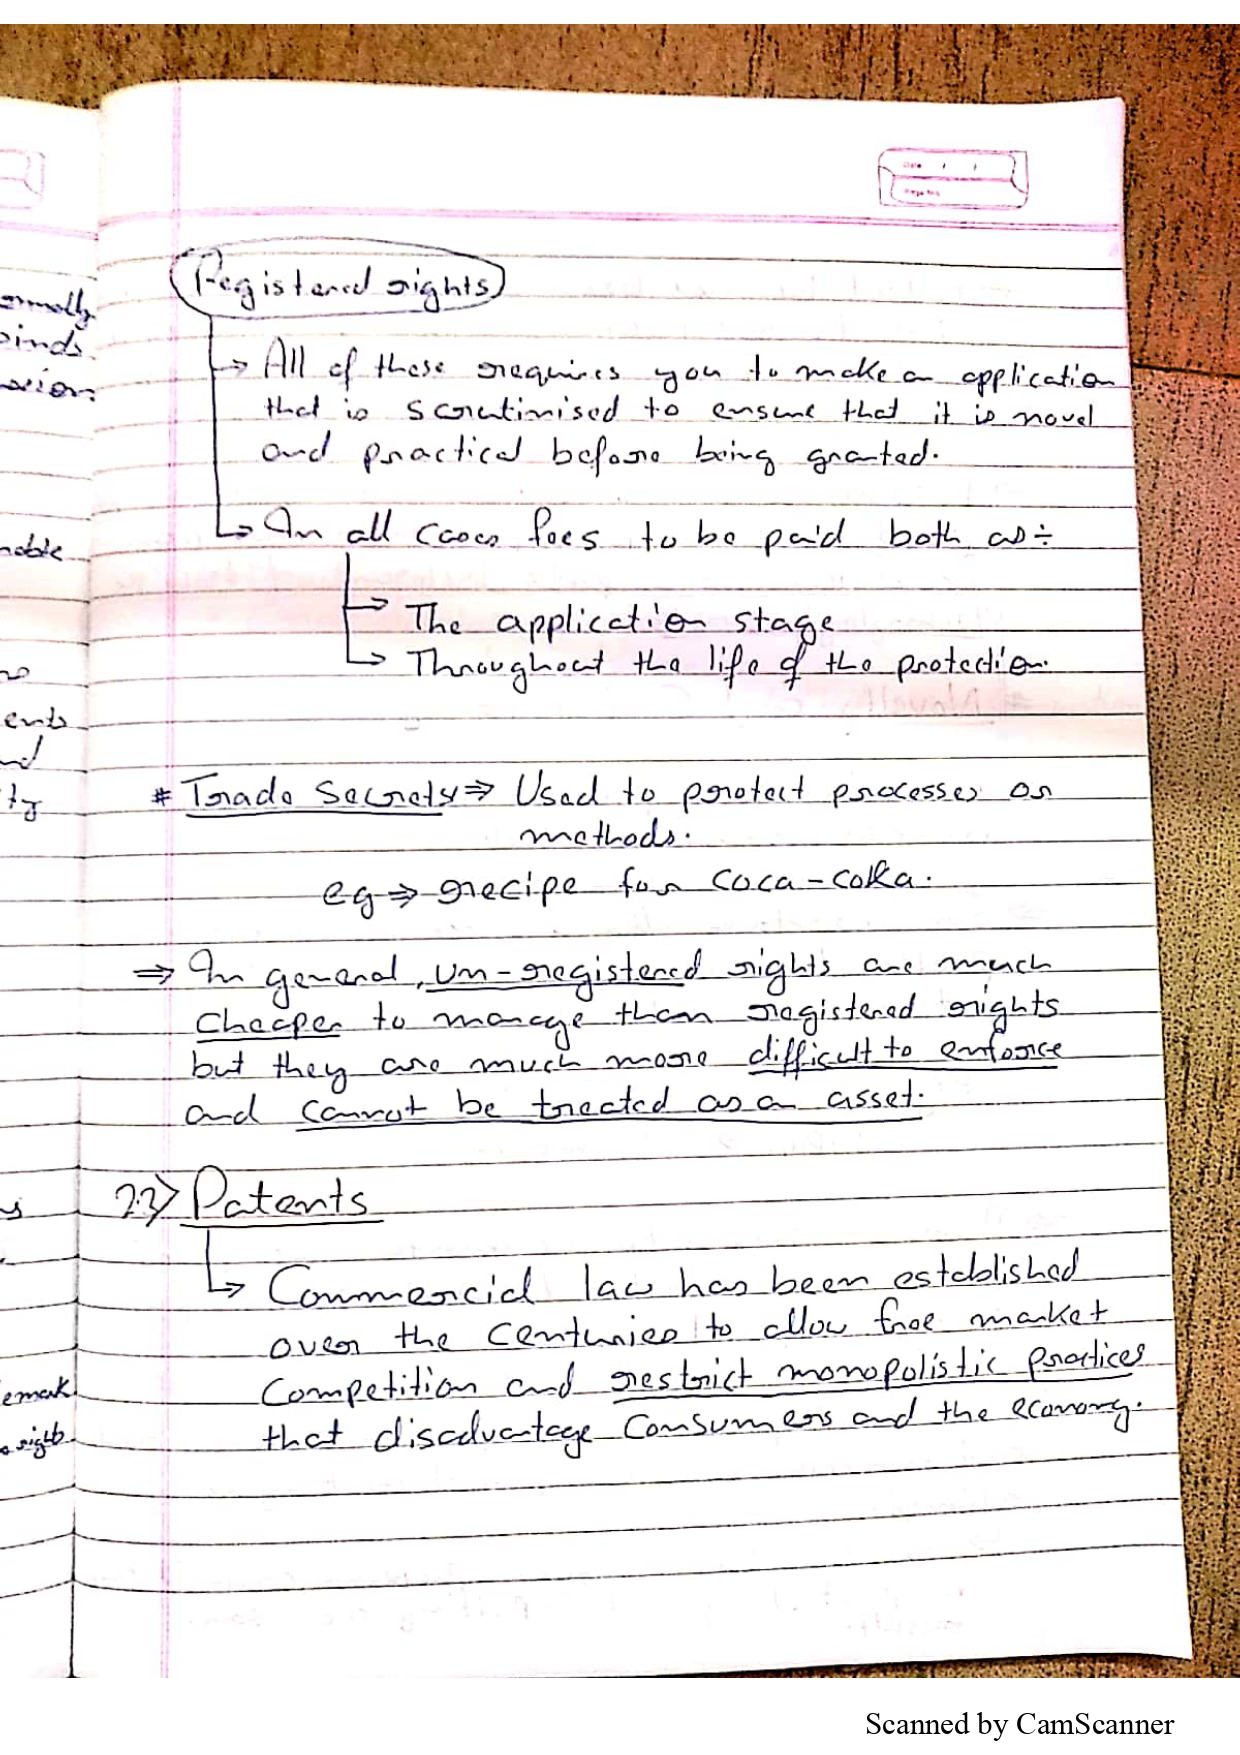 Date / /
Page No.
Registered rights
→ All of these requires you to make an application
that is scrutinised to ensure that it is novel
and practical before being granted.
→ In all cases fees to be paid both as÷
→ The application stage
→ Throughout the life of the protection.
# Trade Secrets ⇒ Used to protect processes or
methods.
eg ⇒ recipe for Coca-Colka.
⇒ In general, un-registered rights are much
cheaper to manage than registered rights
but they are much more difficult to enforce
and cannot be treated as an asset.
2.3) Patents
→ Commercial law has been established
over the centuries to allow free market
competition and restrict monopolistic practices
that disadvantage consumers and the economy.
Scanned by CamScanner